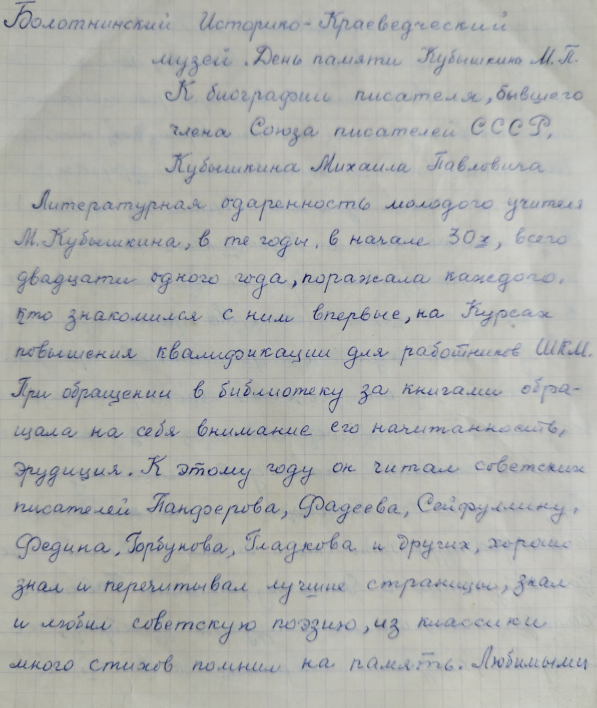 Болотнинский Историко-Краеведческий
музей. День памяти Кубышкина М.П.
К биографии писателя, бывшего
члена Союза писателей СССР,
Кубышкина Михаила Павловича
Литературная одаренность молодого учителя
М. Кубышкина, в те годы, в начале 30х, всего
двадцати одного года, поражала каждого,
кто знакомился с ним впервые, на Курсах
повышения квалификации для работников ШКМ.
При обращении в библиотеку за книгами обра-
щала на себя внимание его начитанность,
эрудиция. К этому году он читал советских
писателей Панферова, Фадеева, Сейфуллину,
Федина, Горбунова, Гладкова и других, хорошо
знал и перечитывал лучшие страницы, знал
и любил советскую поэзию, из классики
много стихов помнил на память. Любимыми